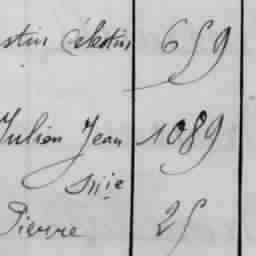 stin Célestin 659
Julien Jean 1089
Pierre 25